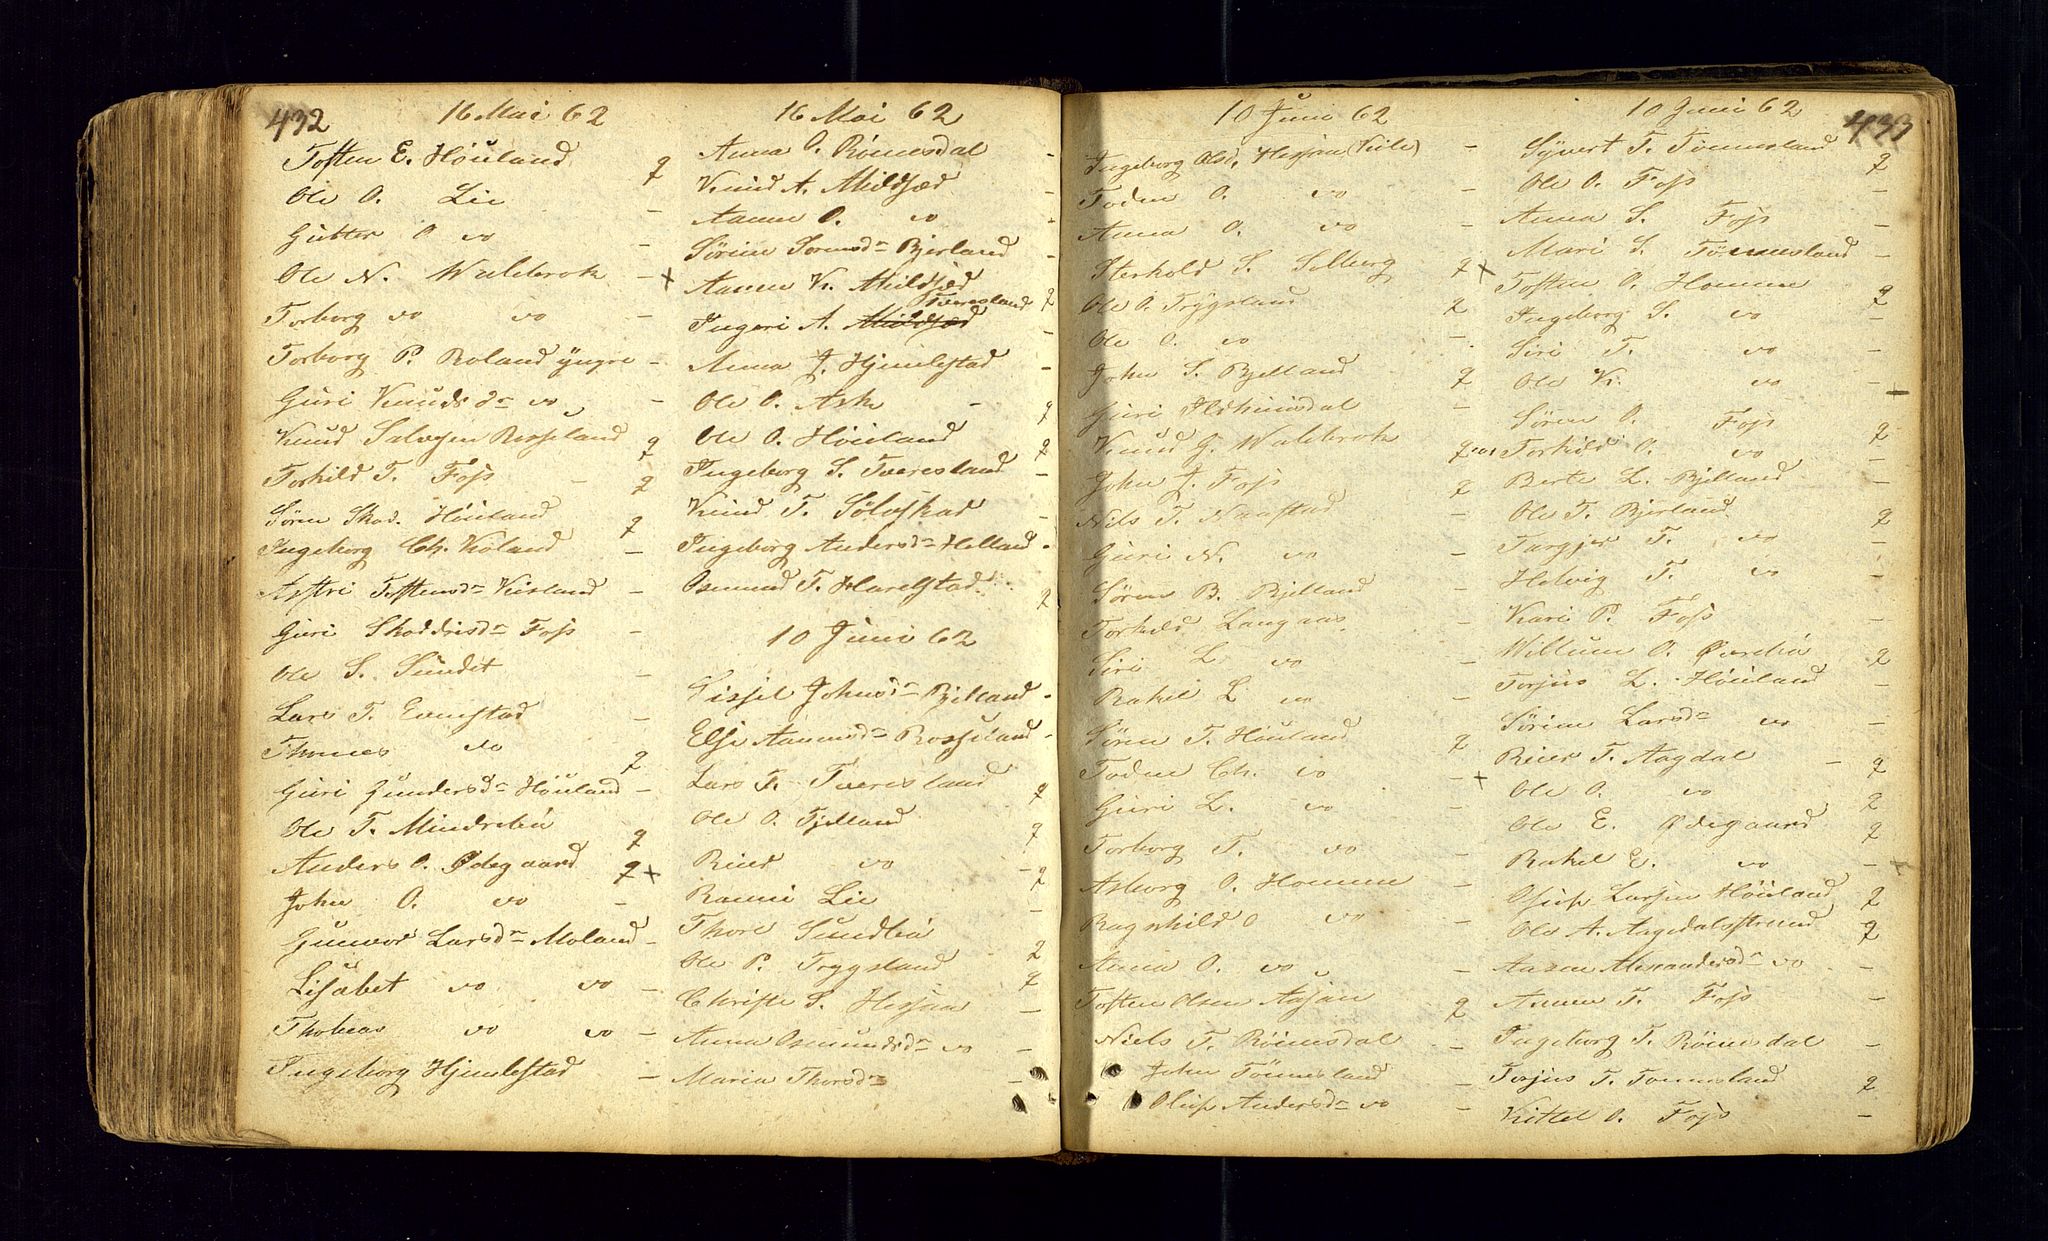 432
16 Mai 62
Tosten E. Høuland 2
Ole O. Lie -
Gutter O vo -
Ole N. Walebrok - x
Torborg vo vo -
Torborg P. Roland yngre -
Guri Knudsdr vo -
Knud Salvesen Rosseland 2
Torkild T. Foss - 2
Søren Skad. Høuland 2
Ingeborg Ch. Koland -
Astri Tostensdr Kirland -
Guri Skaddrisdr Foss -
Ole S. Sundet -
Lars T. Evenstad -
Thomes vo 2
Guri Gundersdr Høuland -
Ole T. Mindrebø 2
Anders O. Ødegaard 2 x
John O. vo -
Gunvor Larsdr Moland -
Lisabet vo vo -
Thobias vo vo -
Ingeborg Hjemlestad -
16 Mai 62
Anna O. Rømesdal -
Knud A. Mildsæd -
Aanen O. vo -
Sørine Sørensdr Bjerland -
Aanen K. Mildsæd 2
Tveresland
Ingeri A. Mildsæd -
Anna J. Hjemlestad -
Ole O. Ask - 2
Ole O. Høuland 2
Ingeborg S. Tveresland -
Knud T. Sølvskad -
Ingeborg Andersdr Helland -
Osmund T. Harelstad 2
10 Juni 62
Sissel Johnsdr Bjelland -
Else Aanensdr Rosseland -
Lars T. Tveresland 2
Ole O. Fjelland 2
Reier vo - 2
Rannei Lie -
Thore Sundbø 2
Ole P. Trygsland 2
Christe S. Hesjaa -
Anna Osmundsdr vo -
Maria Thorsdr -
10 Juni 62
Ingeborg Olsd. Hesjaa -
Toden O. vo -
Anna O. vo -
Sterkold S. Solberg 2 x
Ole O. Trygsland 2
Ole O. vo -
John S. Bjelland 2
Guri Ildhuusdal -
Knud G. Walebrok 2
John J. Foss 2
Niels T. Naastad -
Guri N. vo -
Søren B. Bjelland -
Torkild Langaas -
Siri L. vo -
Rakel L vo -
Søren T. Høuland 2
Toden Ch. vo - x
Guri L. vo -
Torborg T. vo -
Asborg O. Homme -
Ragnhild O vo -
Anna O. vo -
Tosten Olsen Aasjan 2
Niels T. Rømesdal -
John Tønnesland -
Oluf Andersdr vo -
10 Juni 62
433
Syvert T. Tønnesland 2
Ole O. Foss -
Anna S. Foss -
Mari S. Tønnesland -
Tosten O. Homme 2
Ingeborg S. vo -
Siri T. vo -
Ole K. vo -
Søren O. Foss 2
Torkild O. vo -
Berte L. Bjelland -
Ole T. Bjerland 2
Targjer T. vo -
Helvig T. vo -
Kari P. Foss -
Willum O. Øvrebø 2
Torjus L. Høuland -
Sørine Larsdr vo -
Reier T. Aagdal - 2
Ole O. vo 2
Ole E. Ødegaard 2
Rakel E. vo -
Larsen Høuland 2
Ole A. Aagedalsstrand 2
Aasne Alexandersdr vo -
Aanen T. Foss -
Ingeborg T. Rømesdal -
Torjus T. Tønnesland 2
Kittel O. Foss -